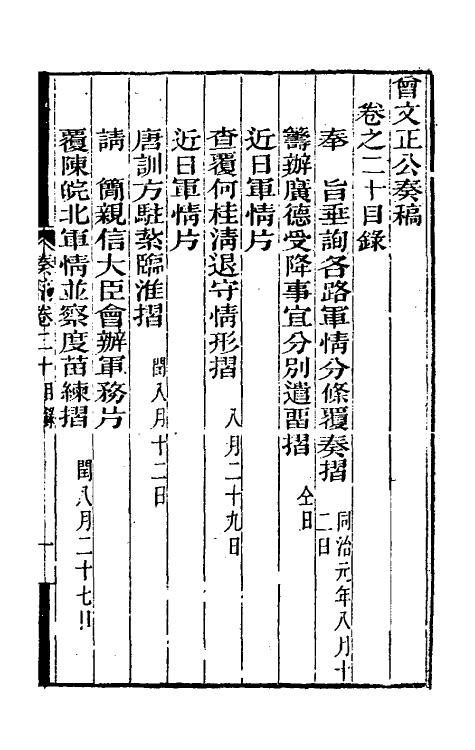 曾文正公奏稿
卷之二十目錄
奉　旨垂詢各路軍情分條覆奏摺　同治元年八月十二日
籌辦廣德受降事宜分別遣畱摺　仝日
近日軍情片
查覆何桂淸退守情形摺　八月二十九日
近日軍情片
唐訓方駐紮臨淮摺　閏八月十二日
請　簡親信大臣會辦軍務片
覆陳皖北軍情並察度苗練摺　閏八月二十七日
奏稿卷二十目錄　一